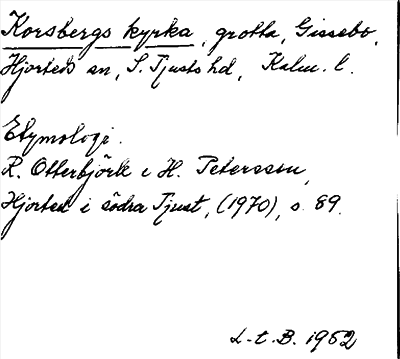 Korsbergs kyrka, grotta, Gissebo,
Hjorteds sn, S. Tjusts hd, Kalm. l.
Etymologi.
R. Otterbjörk i H. Petersson,
Hjorted i södra Tjust, (1970), s. 89.
L.-t. B. 1952